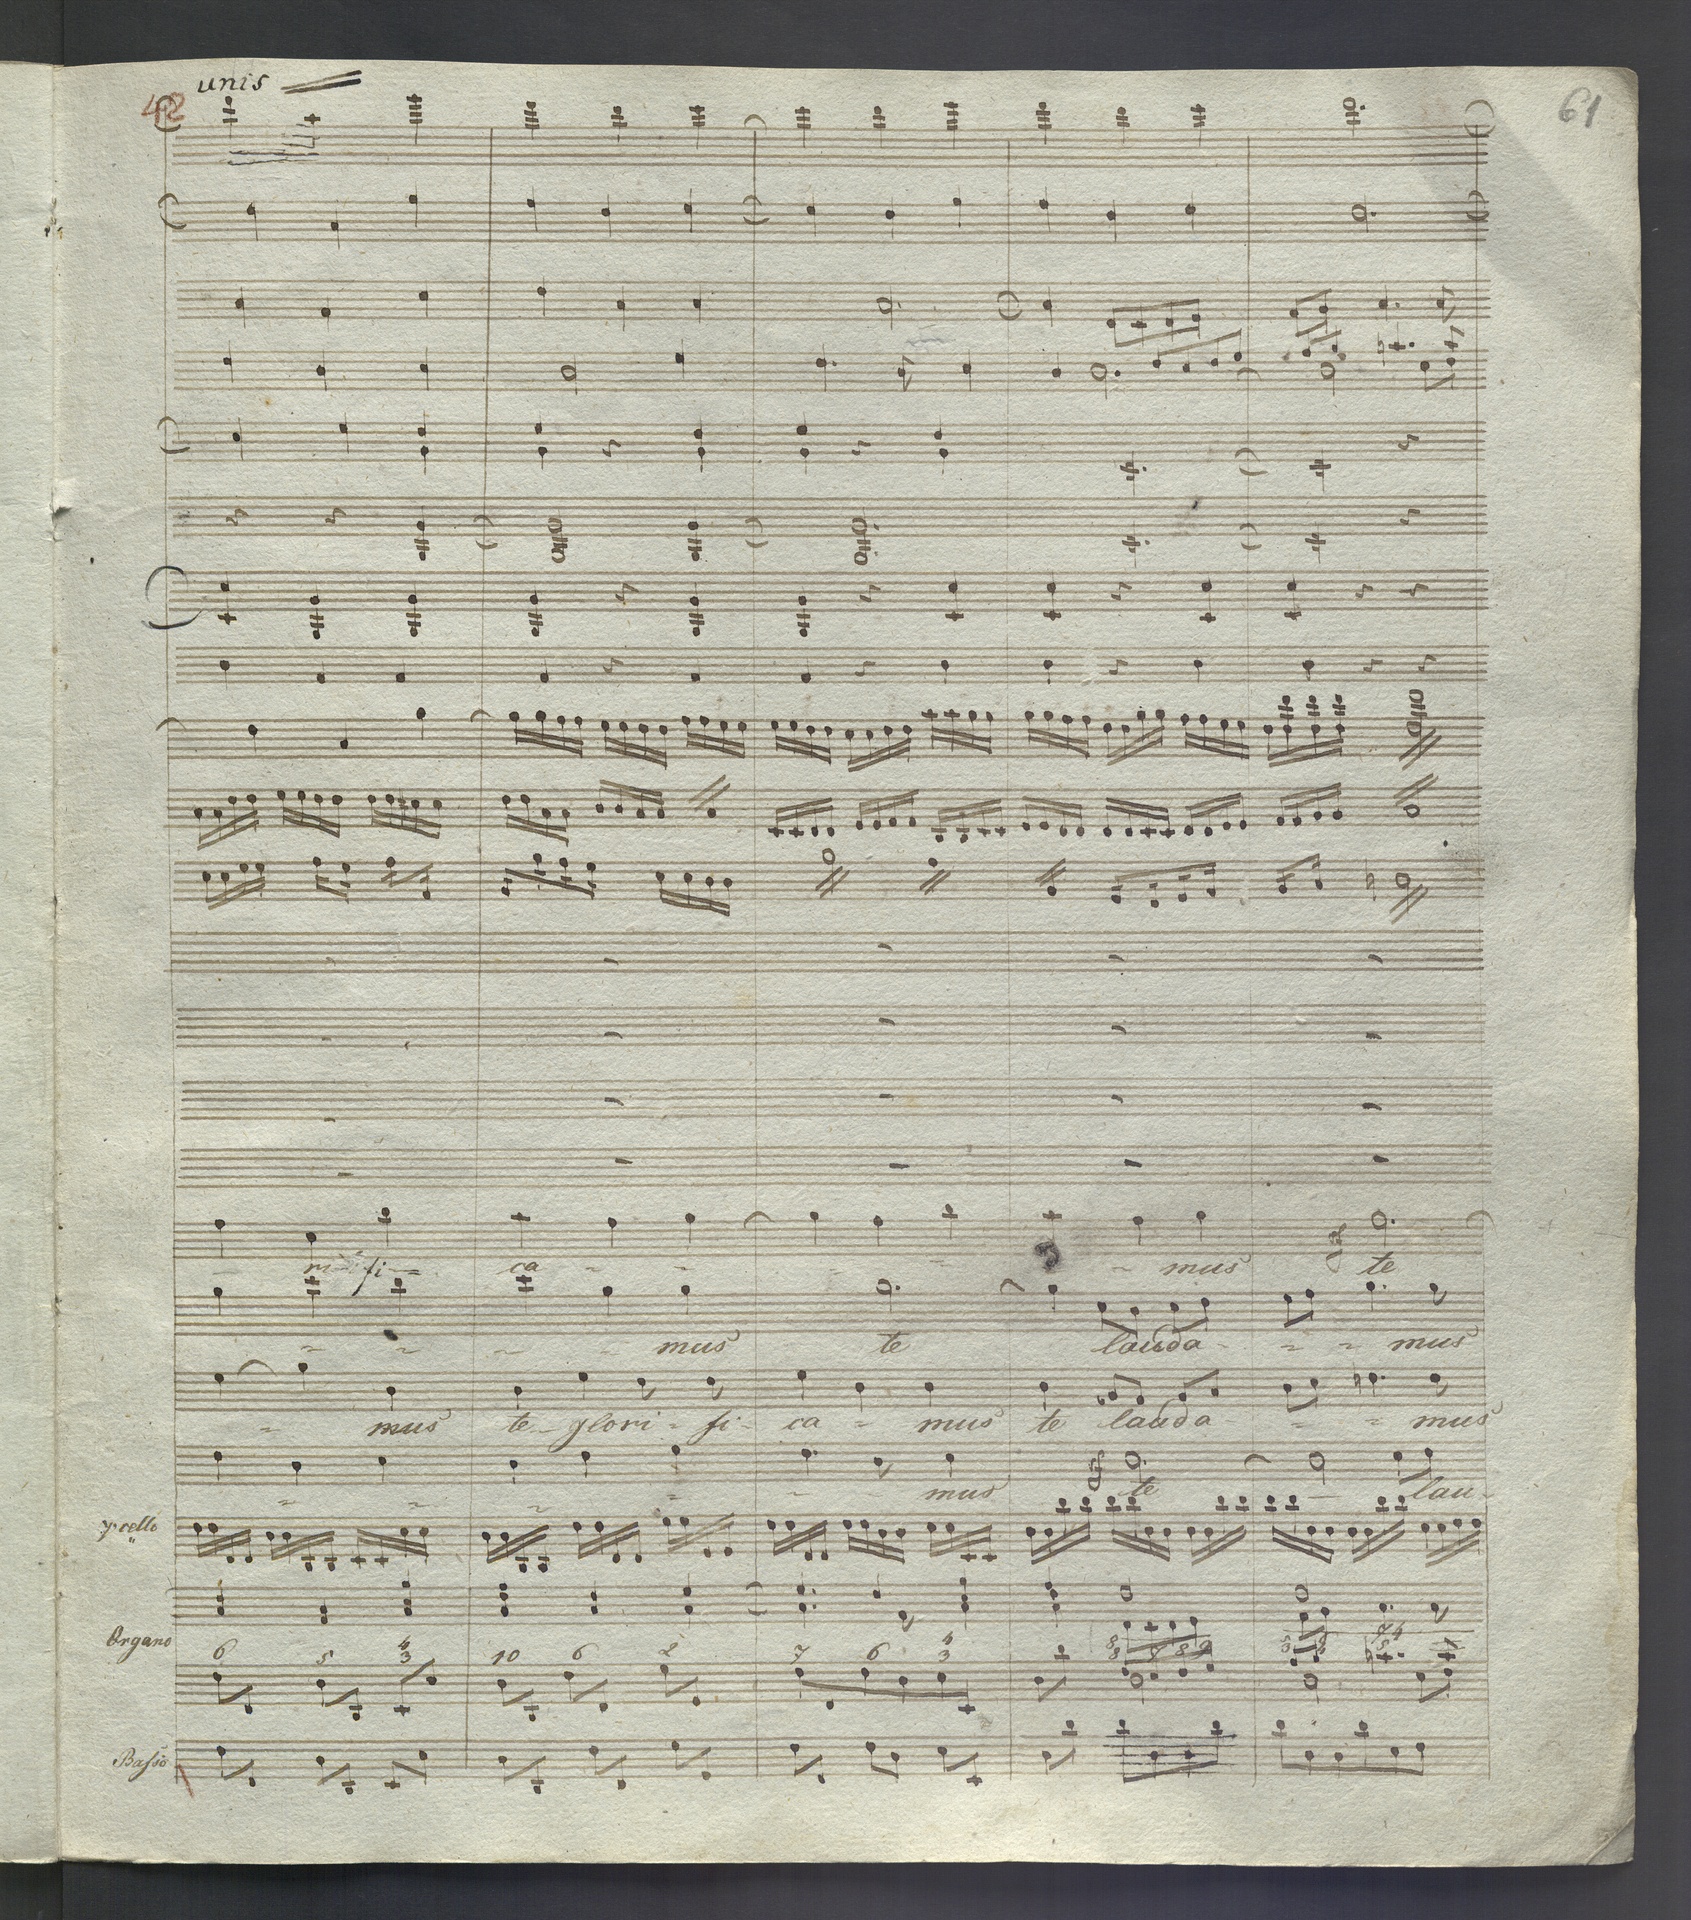 unis
42
61
ri - fi - ca - - mus te
mus te lauda - - - mus
mus te glori - fi - ca - mus te lauda - - mus
mus te lau -
Vcello
Organo
6 5 4 3 10 6 2 7 6 4 3
Basso